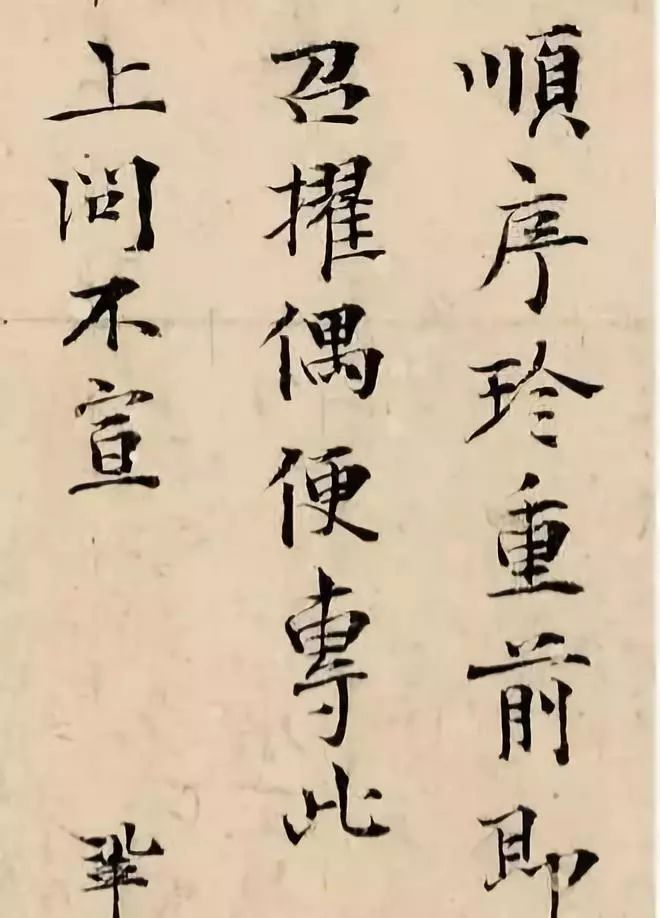 順序珍重前即
召擢偶便專此
上問不宣
鞏